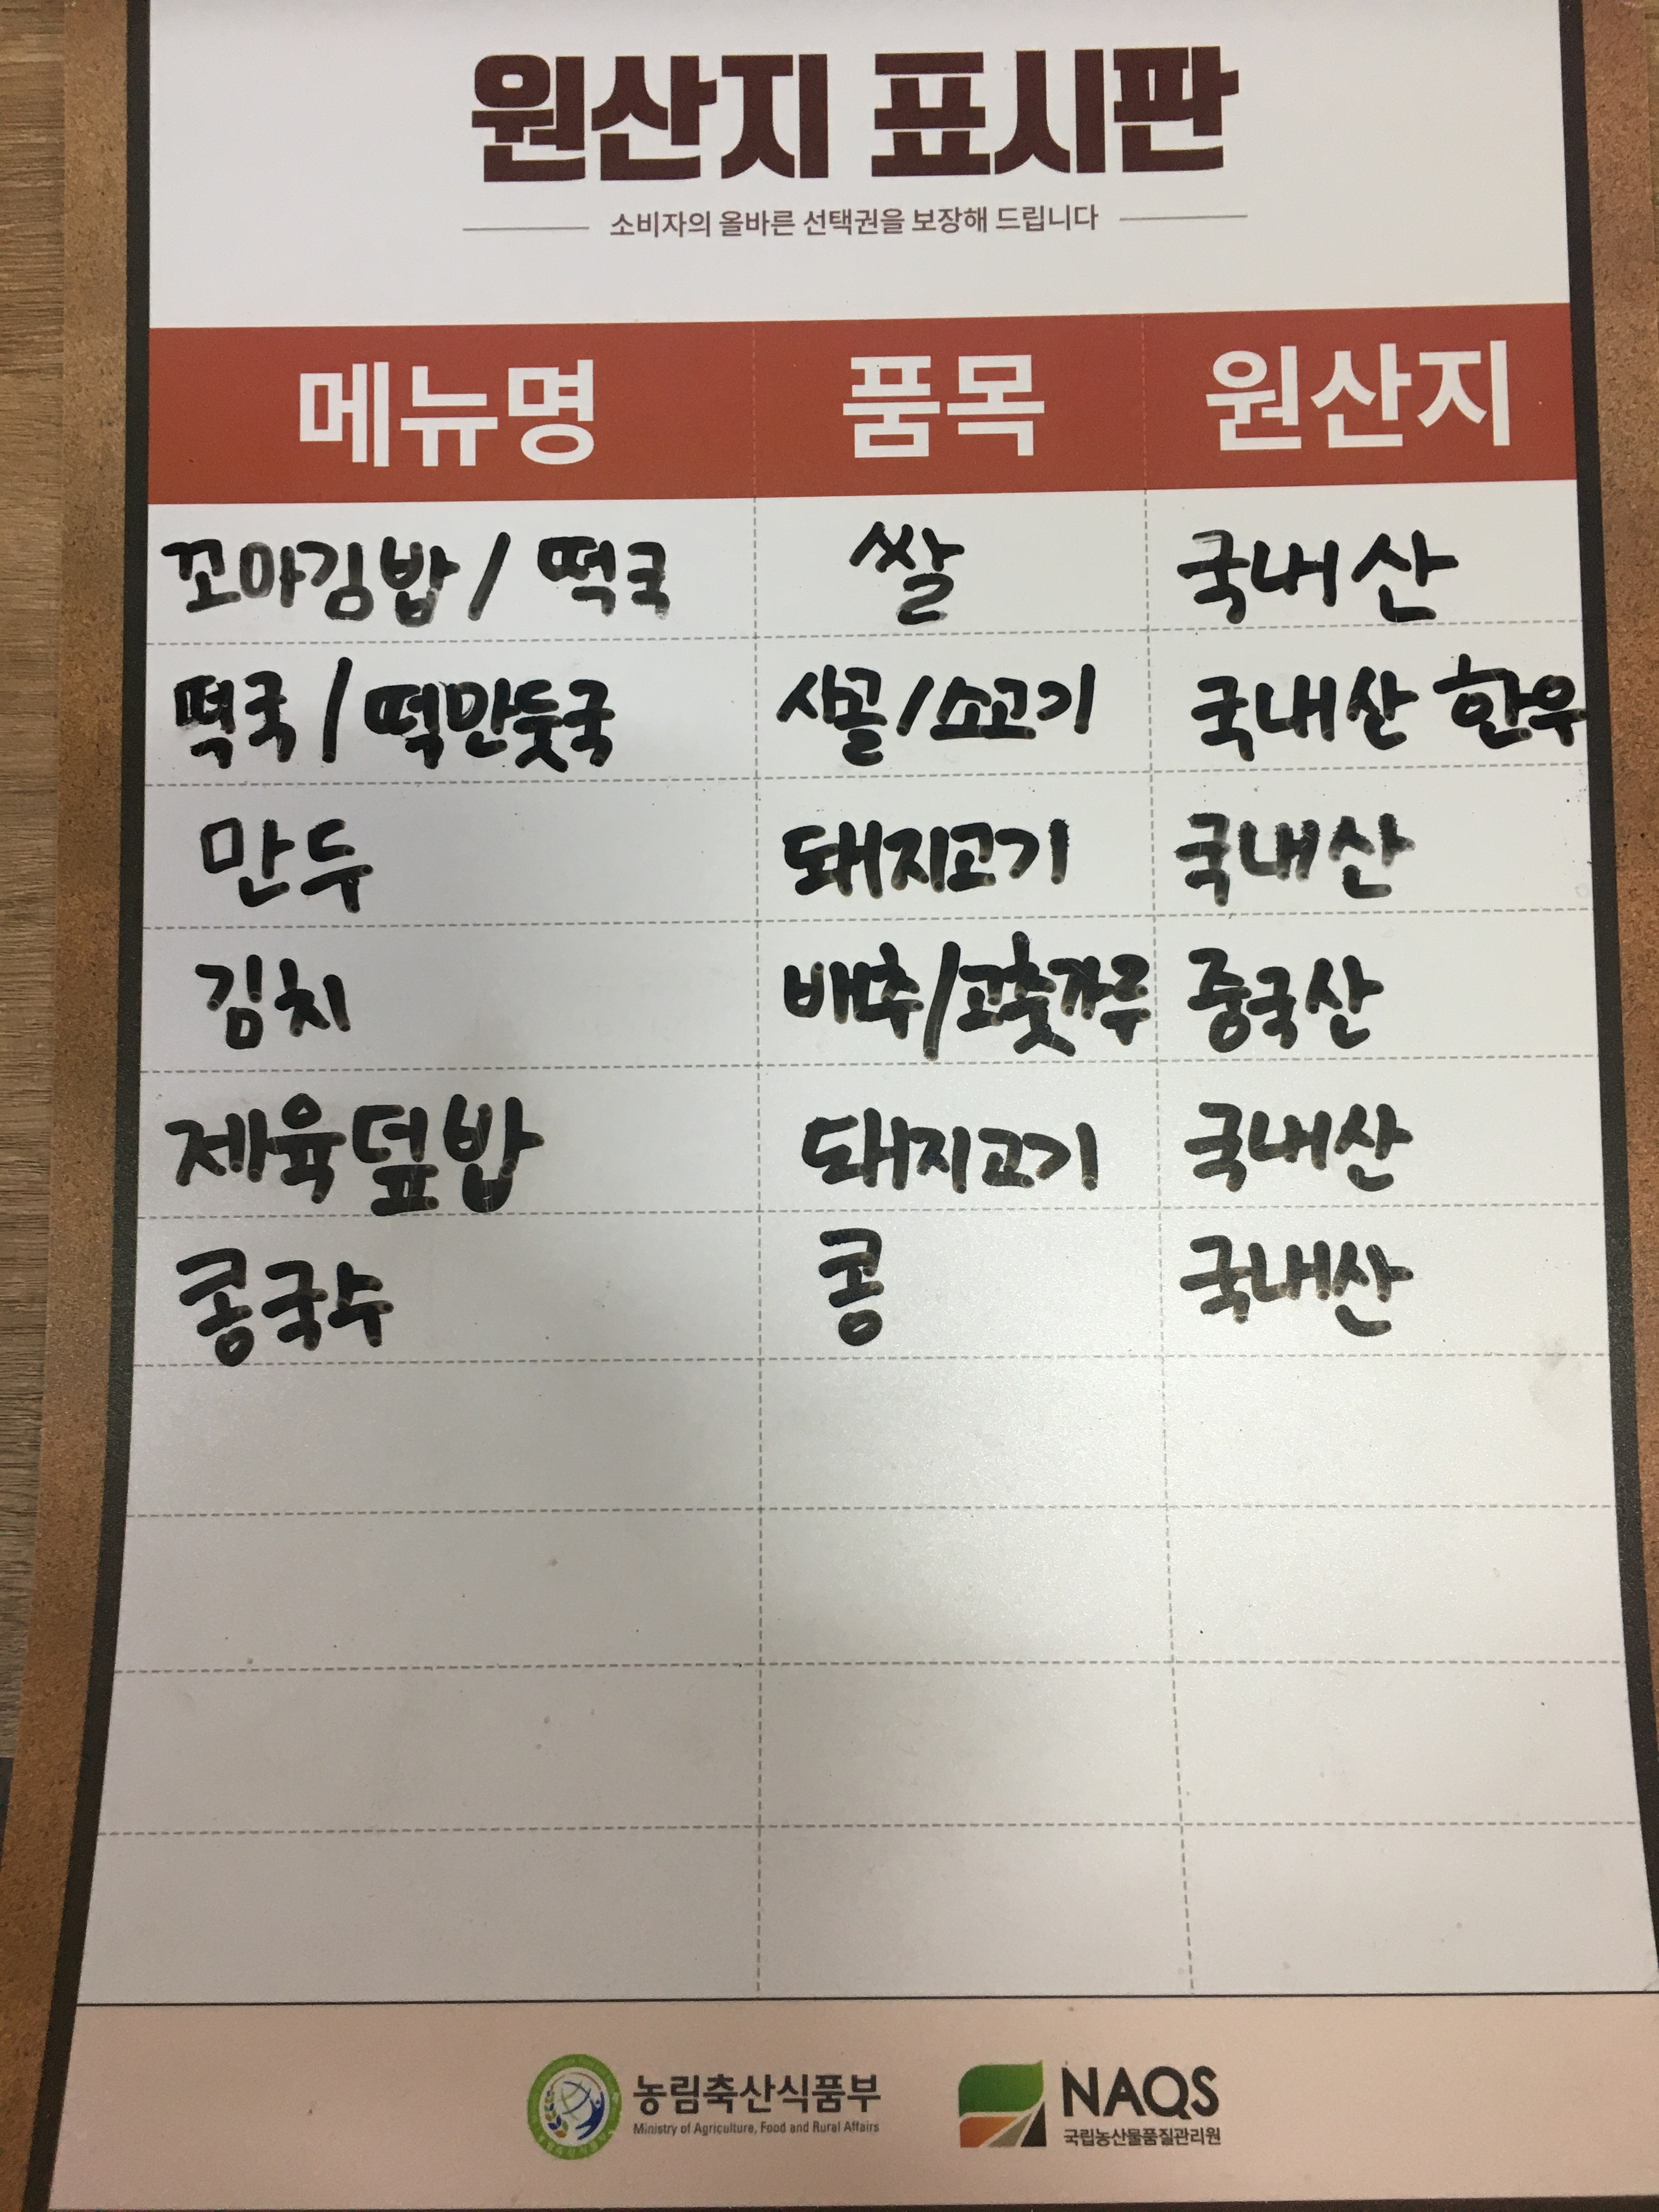 원산지 표시판
소비자의 올바른 선택권을 보장해 드립니다
메뉴명 품목 원산지
꼬마김밥 / 떡국 쌀 국내산
떡국 / 떡만둣국 사골/소고기 국내산 한우
만두 돼지고기 국내산
김치 배추/고춧가루 중국산
제육덮밥 돼지고기 국내산
콩국수 콩 국내산
농림축산식품부
Ministry of Agriculture, Food and Rural Affairs
NAQS
국립농산물품질관리원